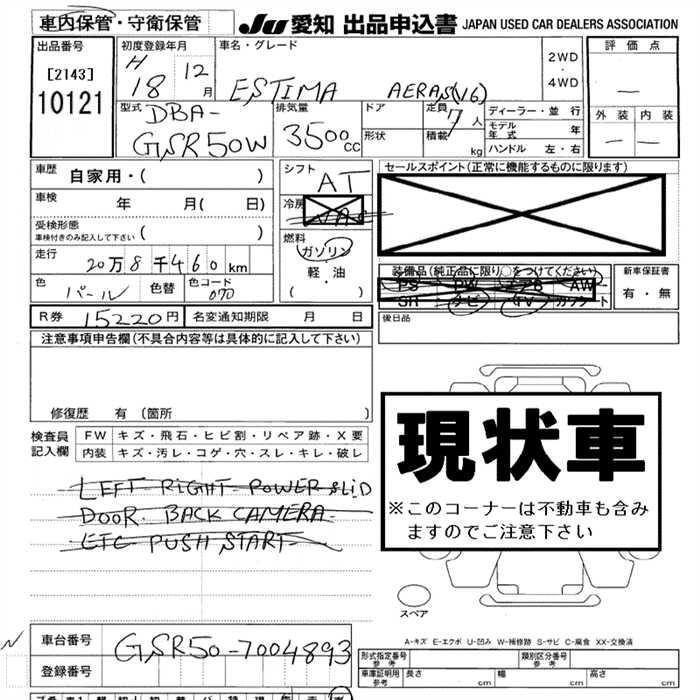 車内保管・守衛保管
JU 愛知 出品申込書 JAPAN USED CAR DEALERS ASSOCIATION
出品番号
[2143]
10121
初度登録年月
H 18 12月
車名・グレード
ESTIMA AERAS(V6)
2WD
・
4WD
評価点
外装 内装
型式
DBA-
GSR50W
排気量
3500cc
ドア
形状
定員 7人
積載 kg
ディーラー・並行
モデル年式 年
ハンドル 左・右
車歴
自家用・( )
車検 年 月( 日)
受検形態
車検付きのみ記入して下さい ( )
走行 20万8千460km
色 パール 色替 色コード 070
シフト AT
冷房
燃料
ガソリン
軽・油
( )
セールスポイント(正常に機能するものに限ります)
装備品(純正品に限り○をつけてください)
PS PW AW
SR ナビ TV
新車保証書
有・無
R券 15220円 名変通知期限 月 日
後日品
注意事項申告欄(不具合内容等は具体的に記入して下さい)
修復歴 有(箇所 )
検査員記入欄
FW キズ・飛石・ヒビ割・リペア跡・X要
内装 キズ・汚レ・コゲ・穴・スレ・キレ・破レ
現状車
※このコーナーは不動車も含みますのでご注意下さい
LEFT RIGHT POWER SLID
DOOR. BACK CAMERA
ETC PUSH START
スペア
A-キズ E-エクボ U-凹み W-補修跡 S-サビ C-腐食 XX-交換済
車台番号 GSR50-7004893
登録番号
形式指定番号 参考
類別区分番号 参考
車庫証明用 参考 長さ cm 幅 cm 高さ cm